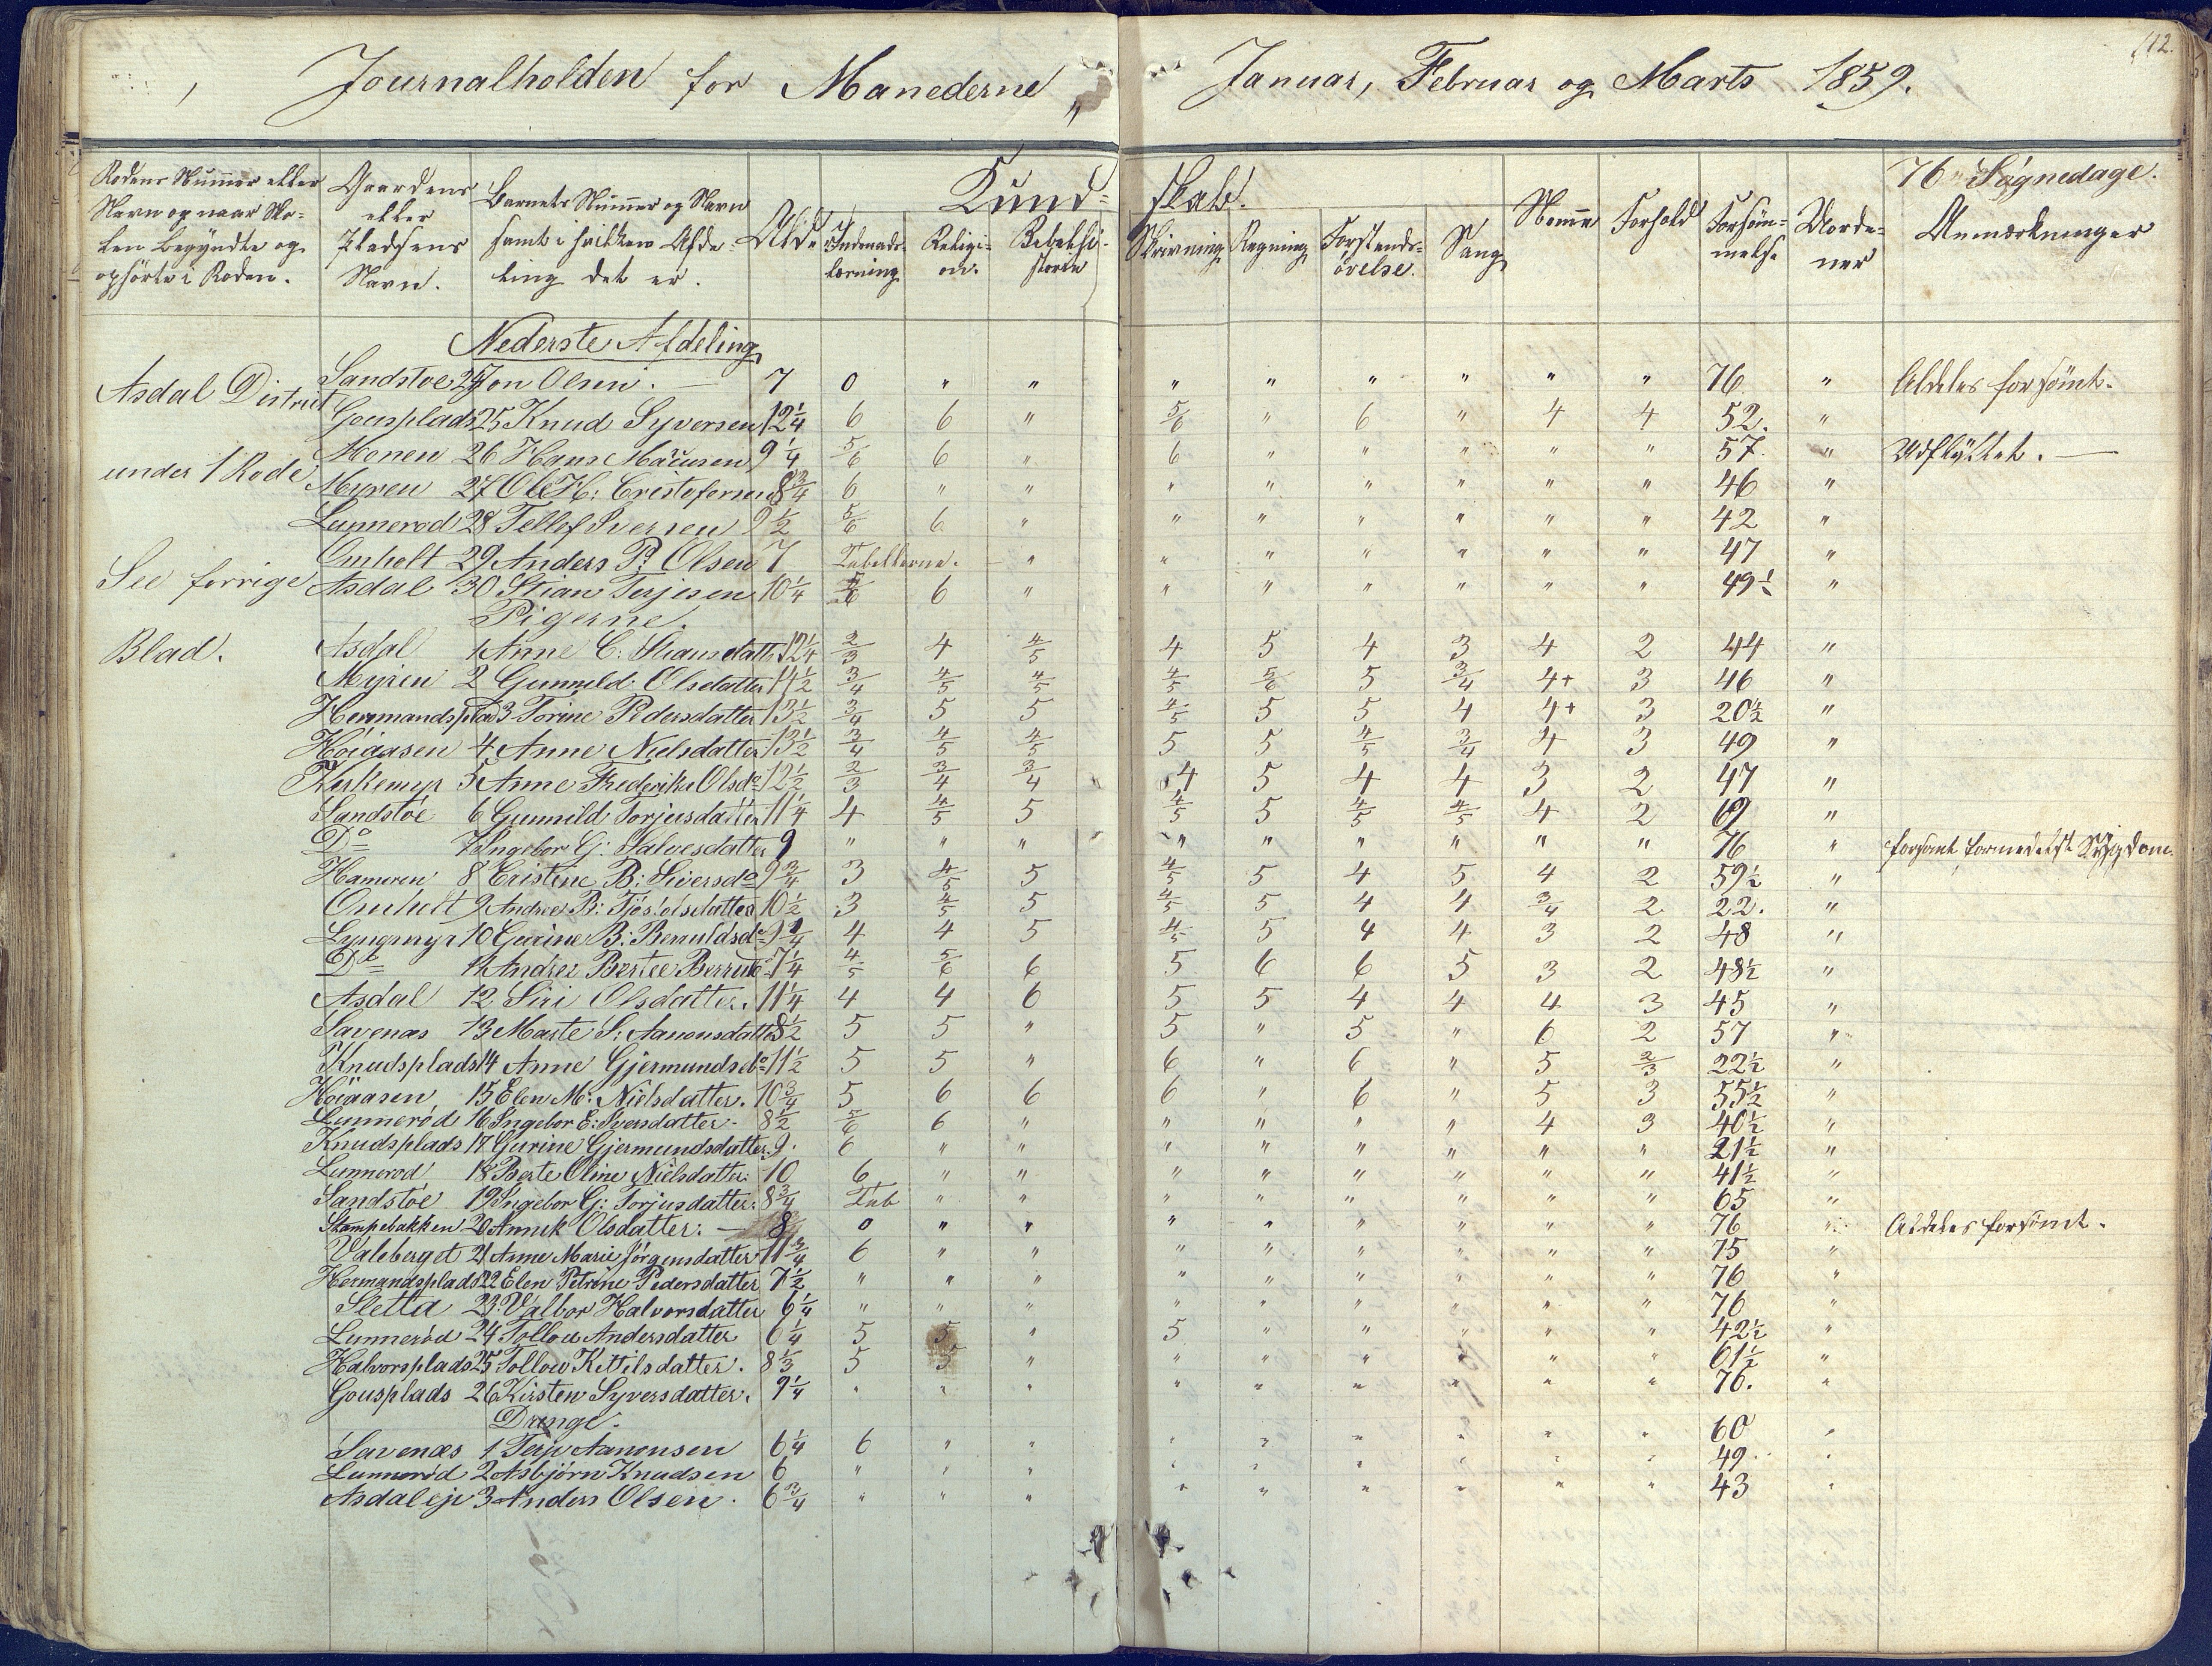 112.
Journalholden for Manederne „ Januar, Februar og Marts 1859.
76 Søgnedage.
Rodens Nummer eller Navn og naar Sko-
len begyndte og
ophørte i Roden.
Gaardens
eller
Pladsens
Navn.
Barnets Nummer og Navn
samt i hvilken Afde-
ling det er.
Alder
Kund- skab.
Indenads-
læsning
Religi-
on.
Bibelhi-
storie
Skrivning
Regning
Forstands-
øvelse.
Sang
Nemme
Forhold
Forsøm-
melse
Anmærkninger
Nederste Afdeling
Asdal District
under 1 Rode
See forrige
Blad.
Sandstøe 24 Jon Olsen. — 7 0 " " " " " " " " 76 " Aldeles forsømt.
Gousplads 25 Knud Syversen 12 1/4 6 6 " 5/6 " 6 " 4 4 52. "
Monen 26 Hans 9 1/4 5/6 6 " 6 " " " " " 57. " Udflyttet. —
Myren 27 Ole H: Cristofersen 8 3/4 6 " " " " " " " " 46 "
Lunnerod 28 Tellef Iversen 9 1/2 5/6 6 " " " " " " " 42 "
Omholt 29 Anders P. Olsen 7 Tabellerne. — " " " " " " " 47 "
Asdal 30 Stian Terjesen 10 1/4 5/6 6 " " " " " " " 49 1/2 "
Pigerne.
Asdal 1 Anne C. Stiansdatt. 12 1/4 2/3 4 4/5 4 5 4 3 4 2 44 "
Myren 2 Gunnild Olsdatter 14 1/2 3/4 4/5 4/5 4/5 5/6 5 3/4 4+ 3 46 "
Hermandsplas 3 Torine Pedersdatter 13 1/2 3/4 5 5 4/5 5 5 4 4+ 3 20 1/2 "
Høiaasen 4 Anne Nielsdatter 13 1/2 3/4 4/5 4/5 5 5 4/5 3/4 4 3 49 "
Kirkemyr 5 Anne Frederikke Olsd. 12 1/2 2/3 3/4 3/4 4 5 4 4 3 2 47 "
Sandstøe 6 Gunnild Torjusdatter 11 1/4 4 4/5 5 4/5 5 4/5 4/5 4 2 69 "
Do 7 Ingebor G: Salvesdatter 9 " " " " " " " " " 76 " forsømt formedelst Sygdom
Hameren 8 Cristine B: Siversdo 9 3/4 3 4/5 5 4/5 5 4 5 4 2 59 1/2 "
Omholt 9 Andrea B: Tjøstolsdatter 10 1/2 3 4/5 5 4/5 5 4 4 3/4 2 22. "
Lyngmyr 10 Gurine B: 9 4 4 5 4/5 5 4 4 3 2 48 "
Do 11 Andrea Bertee 7 1/4 4/5 5/6 6 5 6 6 5 3 2 48 1/2 "
Asdal 12 Siri Olsdatter. 11 1/4 4 4 6 5 5 4 4 4 3 45 "
Savenæs 13 Marte S: Aanonsdatter 8 1/2 5 5 " 5 " 5 " 6 2 57 "
Knudsplads 14 Anne Gjermundsdo 11 1/2 5 5 " 6 " 6 " 5 2/3 22 1/2 "
Høiaasen 15 Elen M: Nielsdatter. 10 3/4 5 6 6 6 " 6 " 5 3 55 1/2 "
Lunnerød 16 Ingebor E: Iversdatter. 8 1/2 5/6 6 " " " " " 4 3 40 1/2 "
Knudsplads 17 Gurine Gjermundsdatter. 9. 6 " " " " " " " " 21 1/2 "
Lunnerod 18 Berte Oline Nielsdatter. 10 6 " " " " " " " " 41 1/2 "
Sandstøe 19 Ingebor G: Torjusdatter. 8 3/4 Tab " " " " " " " " 65 "
Stampebakken 20 Annik Olsdatter: — 8 0 " " " " " " " " 76 " Aldeles forsømt.
Valeberget 21 Anne Marie Jörgensdatter 11 3/4 6 " " " " " " " " 75 "
Hermandsplads 22 Elen Petrine Pedersdatter 7 1/2 " " " " " " " " " 76 "
Sletta 23. Valbor Halvorsdatter 6 1/4 " " " " " " " " " 76 "
Lunnerød 24 Tollou Andersdatter 6 1/4 5 5 " 5 " " " " " 42 1/2 "
Halvorsplads 25 Tollou Kittilsdatter. 8 1/3 5 5 " " " " " " " 61 1/2 "
Gousplads 26 Kirsten Syversdatter. 9 1/4 " " " " " " " " " 76. "
Drenge.
Savenæs 1 Terje Aanonsen 6 1/4 6 " " " " " " " " 60 "
Lunnerød 2 Asbjörn Knudsen 6 " " " " " " " " " 49. "
Asdaleje 3 Anders Olsen. 6 3/4 " " " " " " " " " 43 "